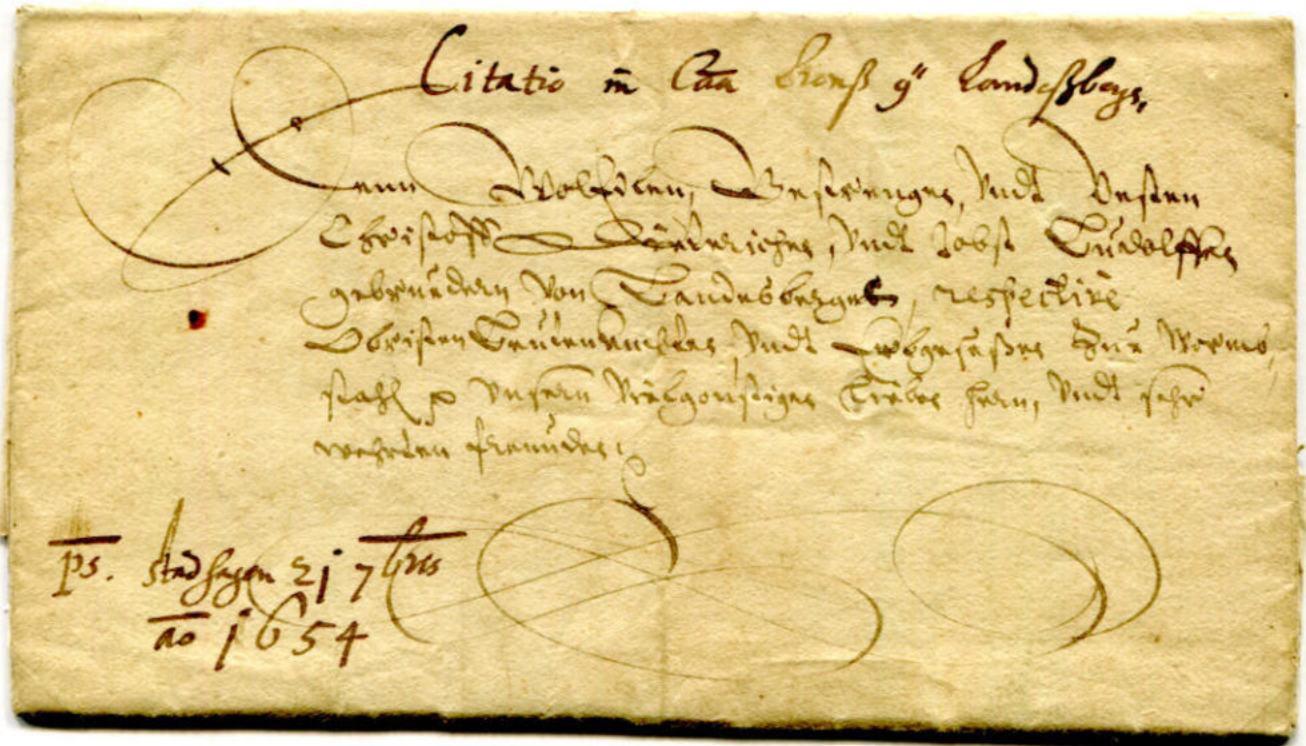 Citatio in Caa Hronß ɔ" Landeßbergs,
Denn Woledlen, Gestrengen, Undt Vesten
Christoff Dieterichen, Undt Jobst Ludolffen
gebruedern von Landesbergen, respectivè
Obristen Leutenambten, Undt Erbgeseßen zue Worms,
stahl p Unsern Vielgönstigen Lieben Hern, Undt sehr
wehrten freunden.
ps. Stadhagen 21 7bris
ao 1654